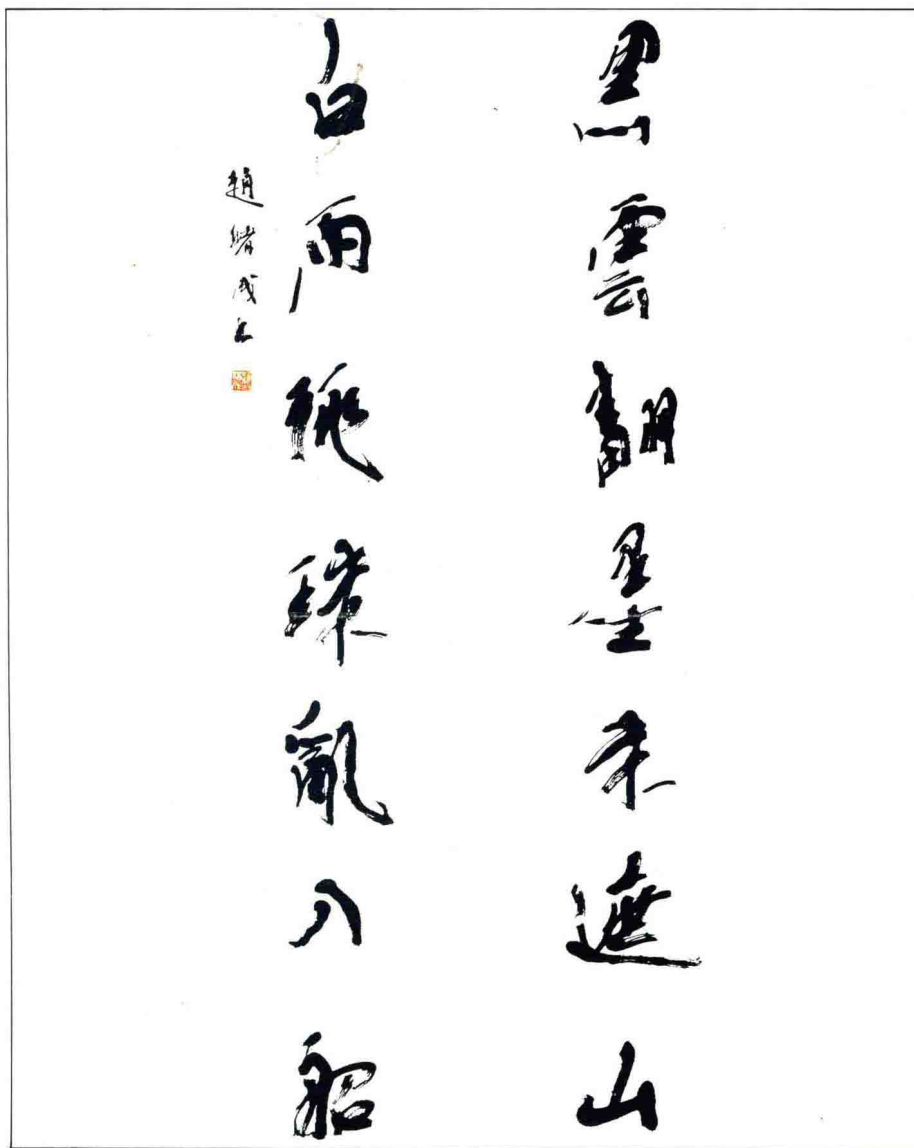 黑雲翻墨未遮山
白雨跳珠亂入船
趙緒成书